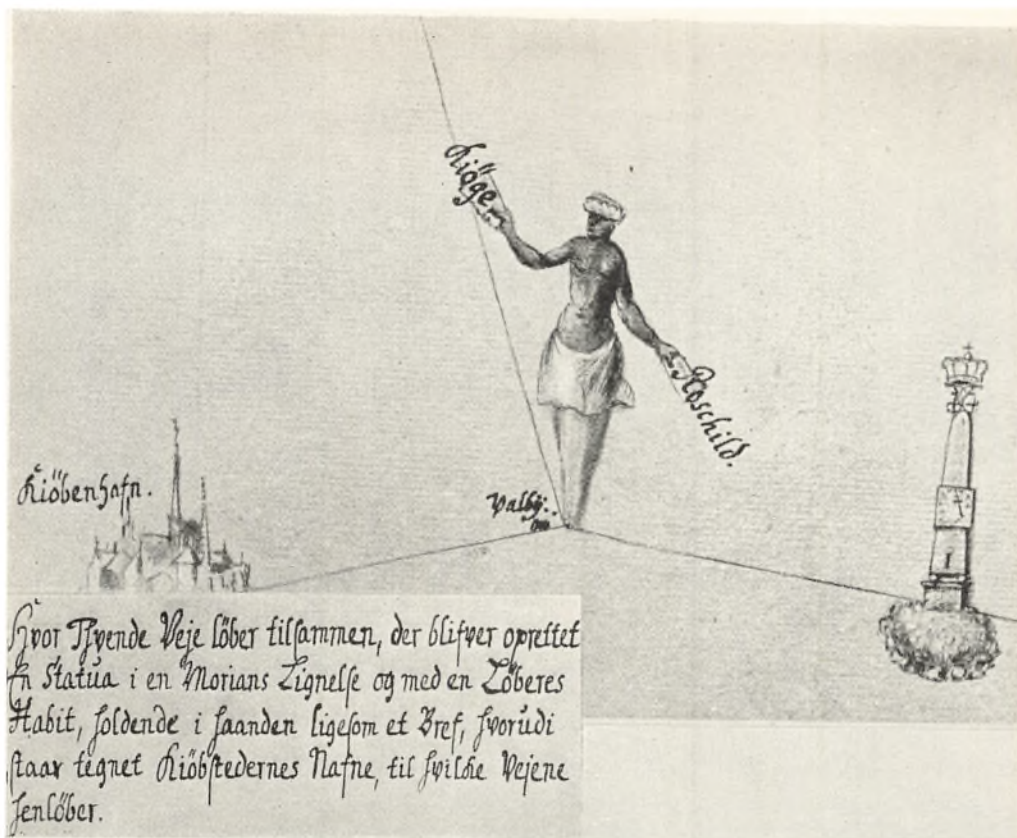 Kiöge
Roschild.
Kiöbenhafn.
Valbÿ.
Hvor Thvende Veje löber tilsammen, der blifver oprettet
En Statua i en Morians Lignelse og med en Löberes
Habit, holdende i haanden ligesom et Bref, hvorudi
staar tegnet Kiöbstedernes Nafne, til hvilcke Vejene
henlöber.